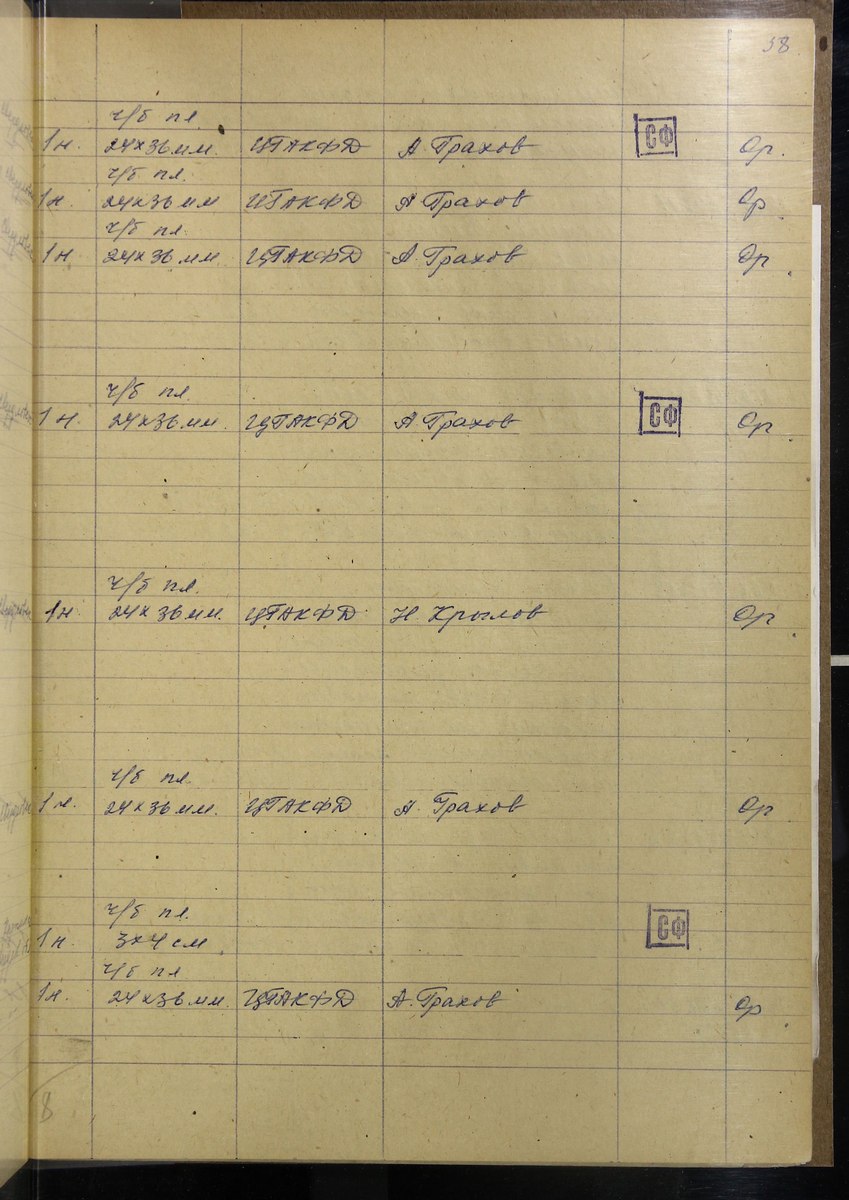 58
ч/б пл.
1н. 24×36 мм. ЦГАКФД А. Грахов СФ Ор.
ч/б пл.
1н. 24×36 мм ЦГАКФД А Грахов Ор
ч/б пл
1н 24×36 мм. ЦГАКФД А. Грахов Ор
ч/б пл.
1 н. 24×36 мм. ЦГАКФД А Грахов СФ Ор
ч/б пл.
1н 24×36 мм. ЦГАКФД Н. Крылов Ор
ч/б пл.
1 н. 24×36 мм. ЦГАКФД А. Грахов Ор
ч/б пл.
1 н. 3×4 см СФ
ч/б пл
1н. 24×36 мм. ЦГАКФД А. Грахов Ор
8